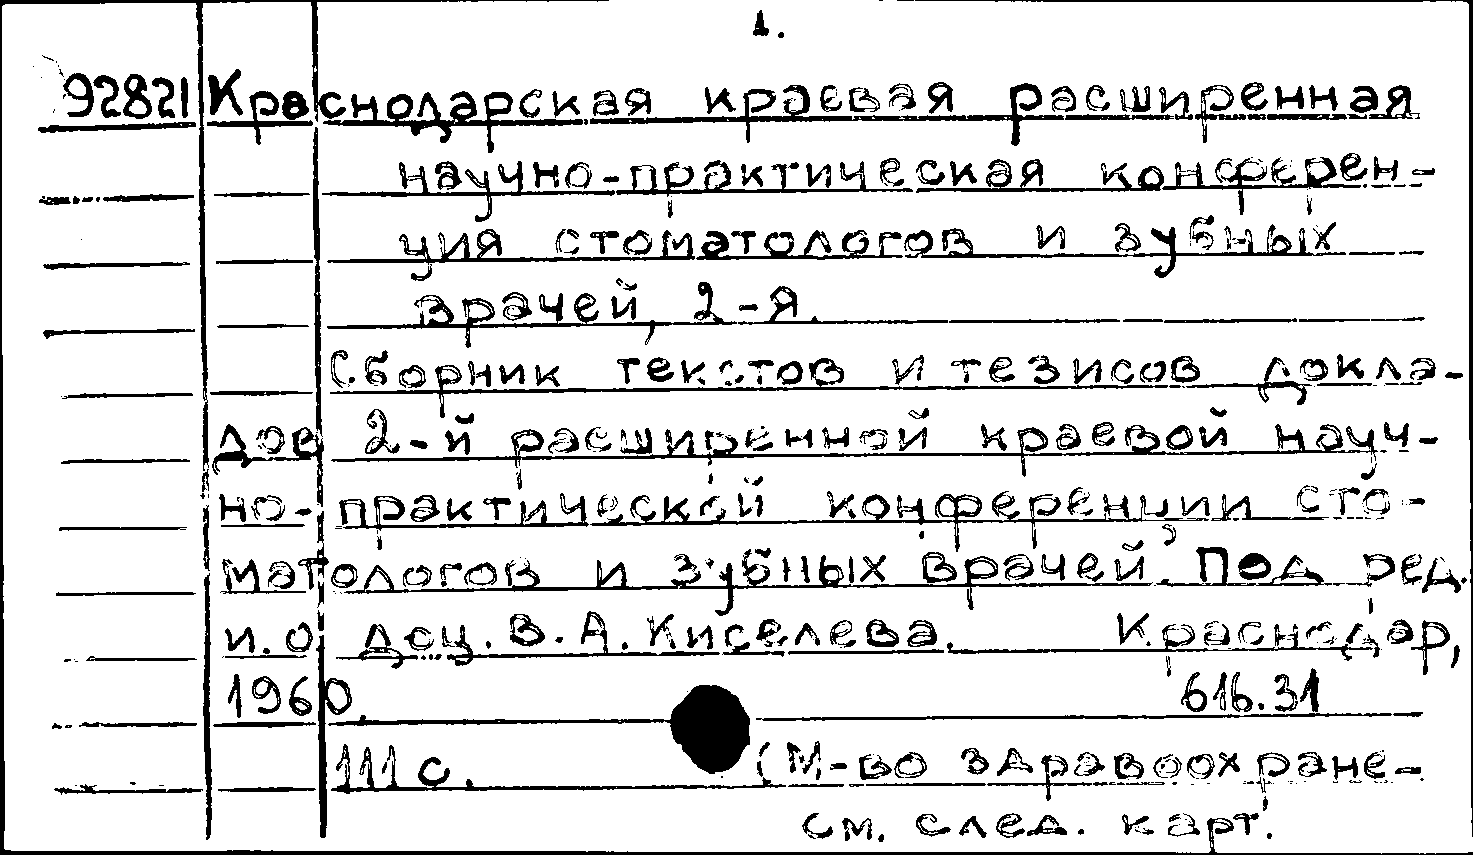 1.
92821 Краснодарская краевая расширенная
научно-практическая конферен-
ция стоматологов и зубных
врачей, 2-я.
Сборник текстов и тезисов докла-
дов 2-й расширенной краевой науч-
но-практической конференции сто-
матологов и зубных врачей. Под ред.
и.о доц. В.А. Киселева. Краснодар,
1960. 616.31
111 с. (М-во здравоохране-
см. след. карт.